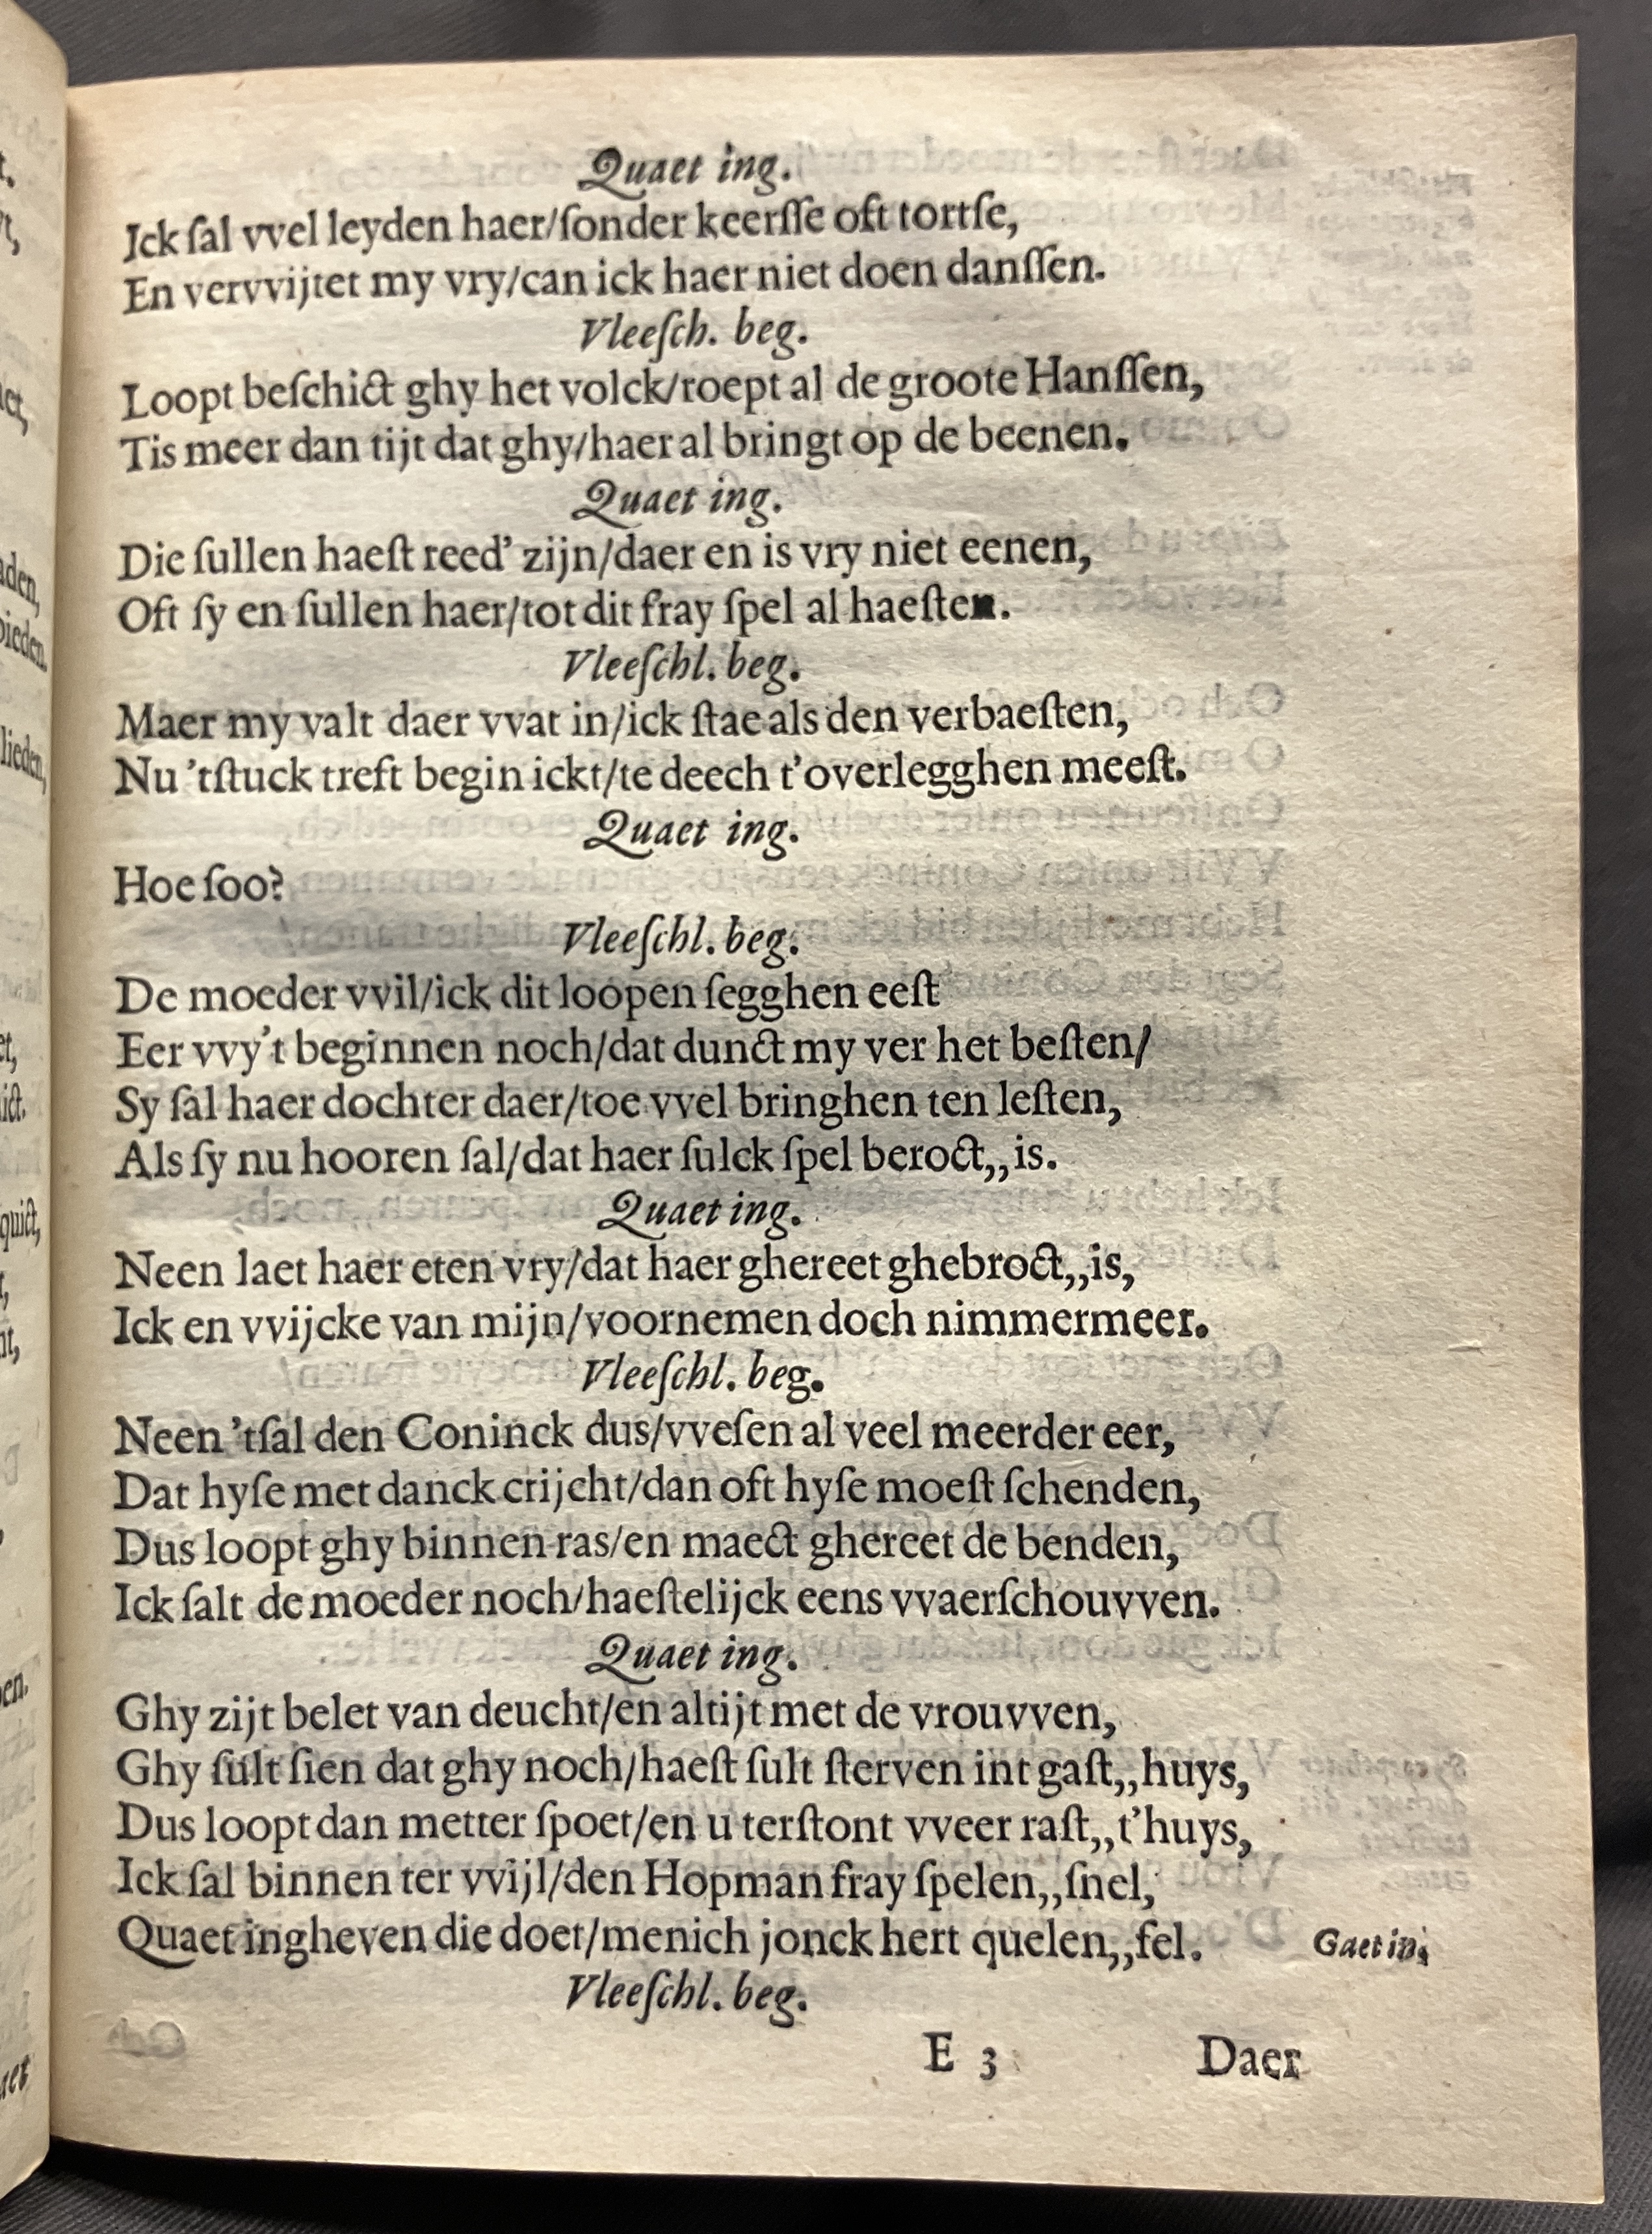 Quaet ing.
Ick ſal vvel leyden haer/ſonder keerſſe oft tortſe,
En vervvijtet my vry/can ick haer niet doen danſſen.
Vleeſch. beg.
Loopt beſchict ghy het volck/roept al de groote Hanſſen,
Tis meer dan tijt dat ghy/haer al bringt op de beenen.
Quaet ing.
Die ſullen haeſt reed' zijn/daer en is vry niet eenen,
Oft ſy en ſullen haer/tot dit fray ſpel al haeſten.
Vleeſchl. beg.
Maer my valt daer vvat in/ick ſtae als den verbaeſten,
Nu 'tſtuck treft begin ickt/te deech t'overlegghen meeſt.
Quaet ing.
Hoe ſoo?
Vleeſchl. beg.
De moeder vvil/ick dit loopen ſegghen eeſt
Eer vvy't beginnen noch/dat dunct my ver het beſten/
Sy ſal haer dochter daer/toe vvel bringhen ten leſten,
Als ſy nu hooren ſal/dat haer ſulck ſpel beroct,,is.
Quaet ing.
Neen laet haer eten vry/dat haer ghereet ghebroct,,is,
Ick en vvijcke van mijn/voornemen doch nimmermeer.
Vleeſchl. beg.
Neen 'tſal den Coninck dus/vveſen al veel meerder eer,
Dat hyſe met danck crijcht/dan oft hyſe moeſt ſchenden,
Dus loopt ghy binnen ras/en maect ghereet de benden,
Ick ſalt de moeder noch/haeſtelijck eens vvaerſchouvven.
Quaet ing.
Ghy zijt belet van deucht/en altijt met de vrouvven,
Ghy ſult ſien dat ghy noch/haeſt ſult ſterven int gaſt,,huys,
Dus loopt dan metter ſpoet/en u terſtont vveer raſt,,t'huys,
Ick ſal binnen ter vvijl/den Hopman fray ſpelen,,ſnel,
Quaet ingheven die doet/menich jonck hert quelen,,fel. Gaet in.
Vleeſchl. beg.
E 3 Daer